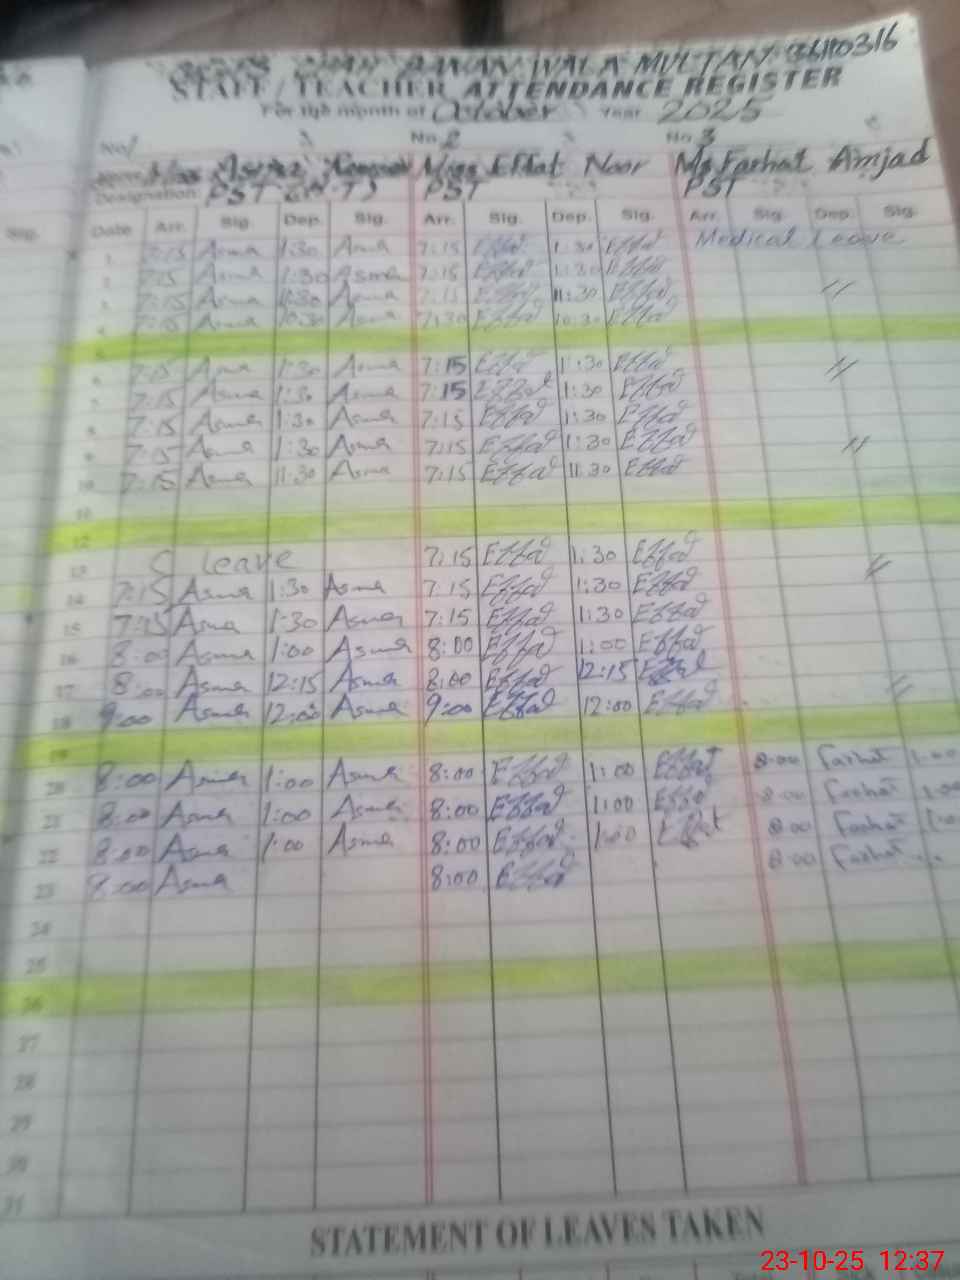 WALA MULTAN 36110316
STAFF / TEACHER ATTENDANCE REGISTER
For the month of October Year 2025
No. No. 2 No. 3
Miss Asma Miss Effat Noor Ms Farhat Amjad
Designation: PST PST PST
Sig. Date Arr. Sig. Dep. Sig. Arr. Sig. Dep. Sig. Arr. Sig. Dep. Sig.
1 7:15 Asma 1:30 Asma 7:15 Effat 1:30 Effat Medical Leave
2 7:15 Asma 1:30 Asma 7:15 Effat 1:30 Effat
3 7:15 Asma 11:30 Asma 7:15 Effat 11:30 Effat //
4 7:15 Asma 10:30 Asma 7:30 Effat 10:30 Effat
5
6 7:15 Asma 1:30 Asma 7:15 Effat 1:30 Effat //
7 7:15 Asma 1:30 Asma 7:15 Effat 1:30 Effat
8 7:15 Asma 1:30 Asma 7:15 Effat 1:30 Effat
9 7:15 Asma 1:30 Asma 7:15 Effat 1:30 Effat //
10 7:15 Asma 11:30 Asma 7:15 Effat 11:30 Effat
11
12
13 leave 7:15 Effat 1:30 Effat //
14 7:15 Asma 1:30 Asma 7:15 Effat 1:30 Effat
15 7:15 Asma 1:30 Asma 7:15 Effat 1:30 Effat
16 8:00 Asma 1:00 Asma 8:00 Effat 1:00 Effat
17 8:00 Asma 12:15 Asma 8:00 Effat 12:15 Effat //
18 9:00 Asma 12:00 Asma 9:00 Effat 12:00 Effat
19
20 8:00 Asma 1:00 Asma 8:00 Effat 1:00 Effat 8:00 Farhat 1:00
21 8:00 Asma 1:00 Asma 8:00 Effat 1:00 Effat 8:00 Farhat 1:00
22 8:00 Asma 1:00 Asma 8:00 Effat 1:00 Effat 8:00 Farhat
23 8:00 Asma 8:00 Effat 8:00 Farhat
24
25
26
27
28
29
30
31
STATEMENT OF LEAVES TAKEN
23-10-25 12:37